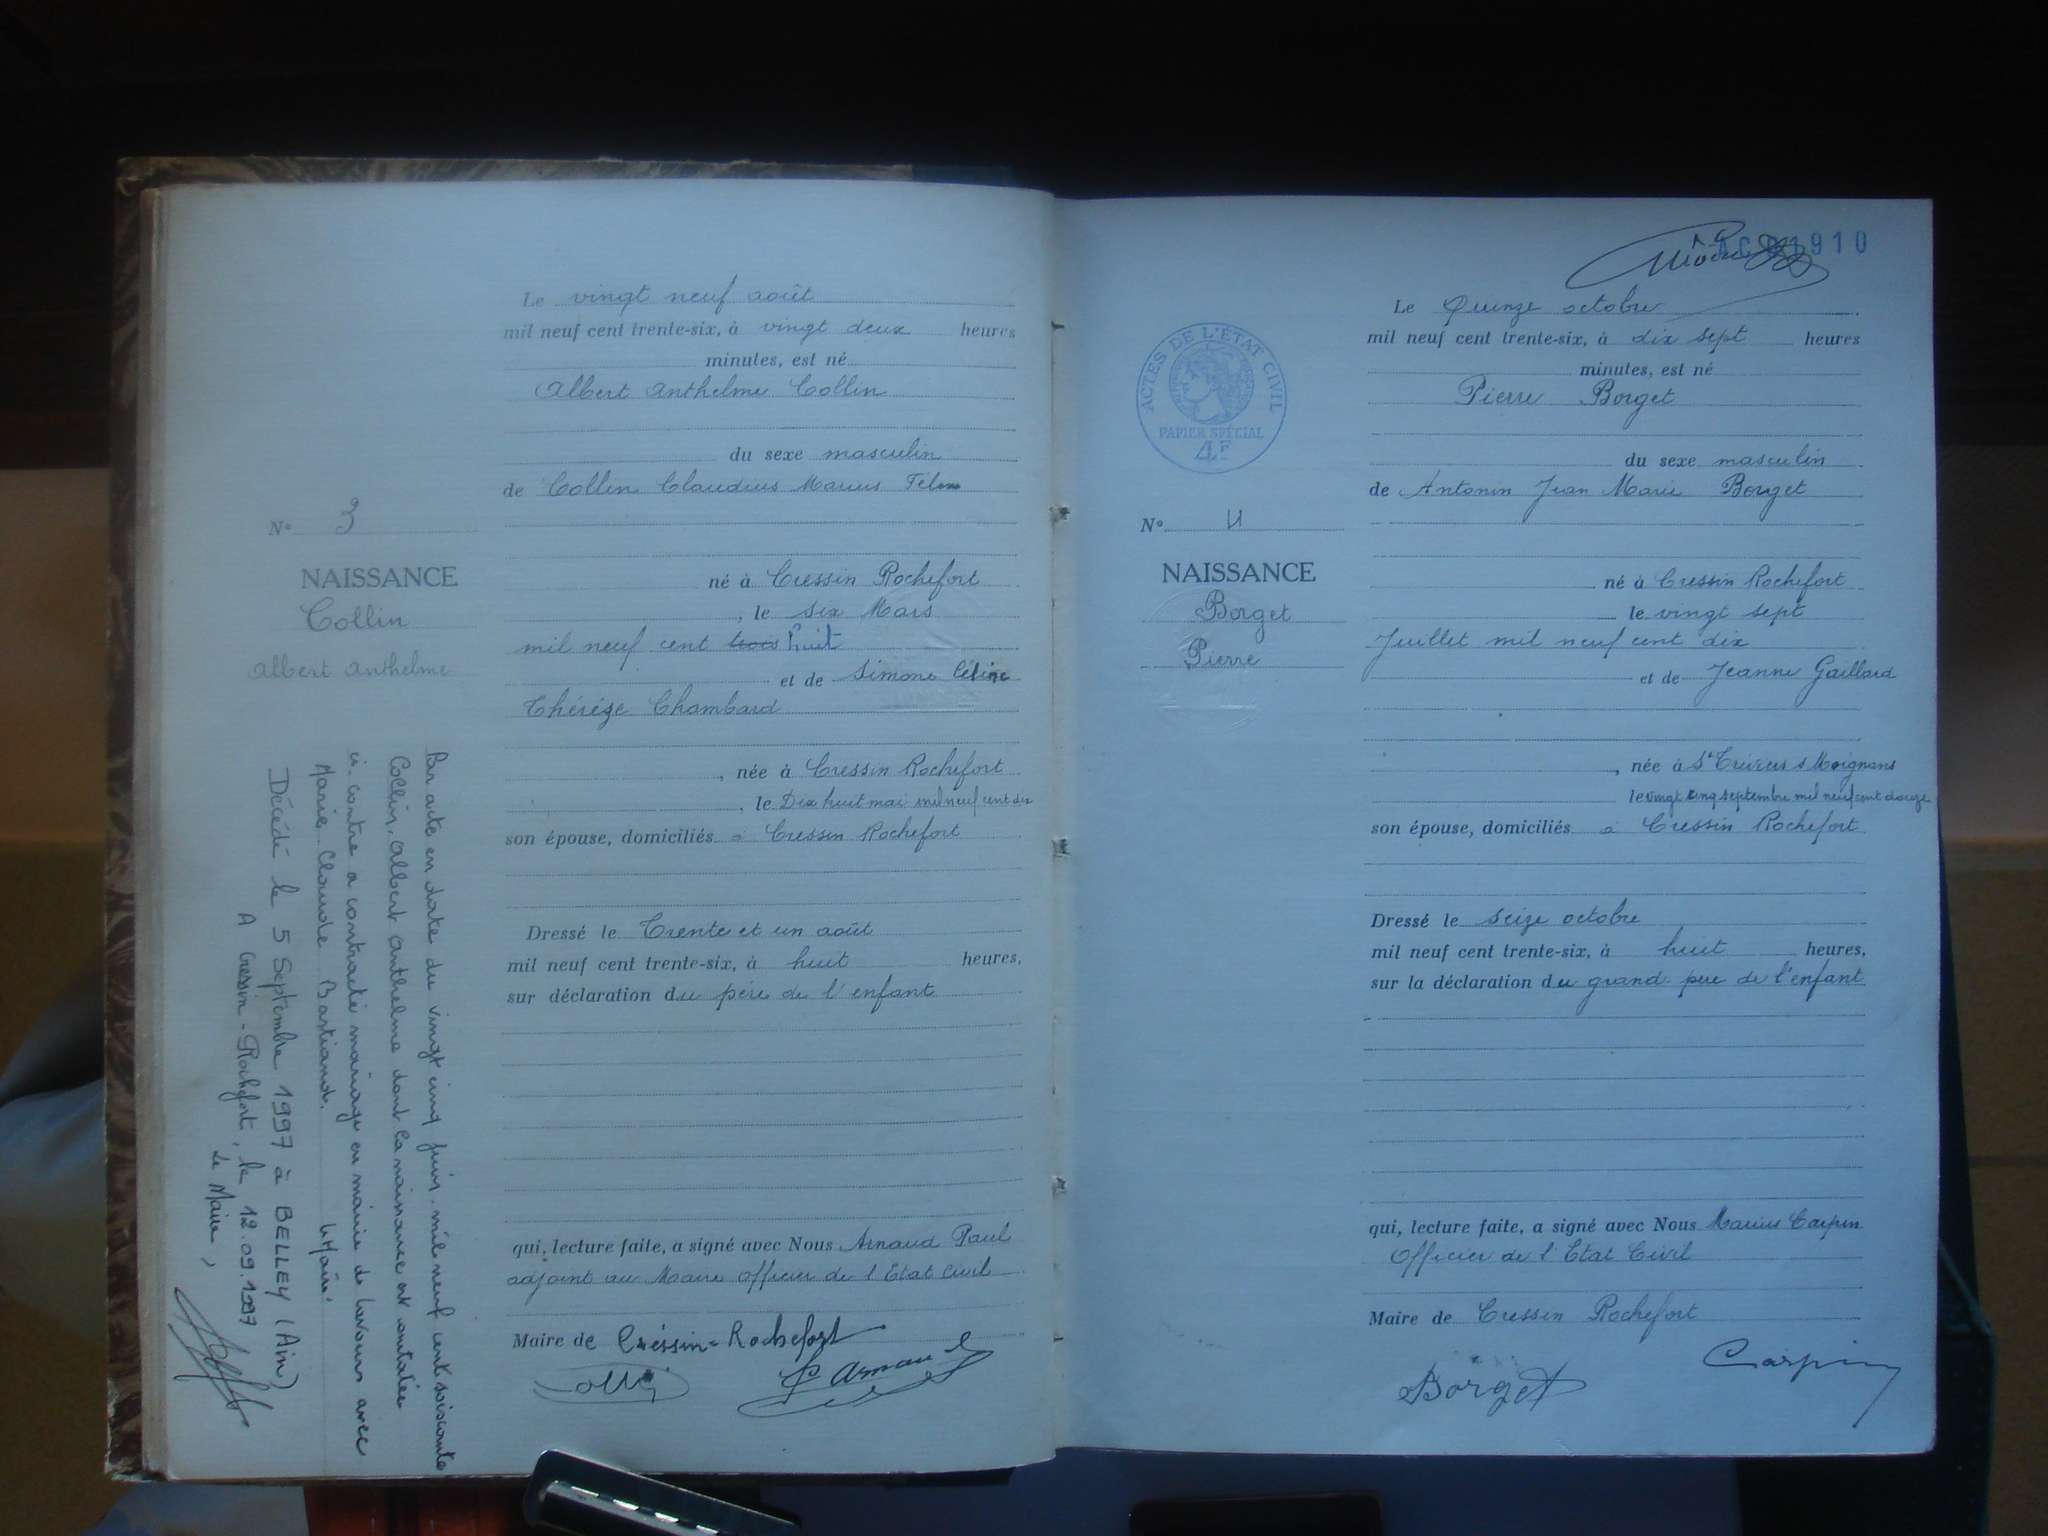 Le vingt neuf août
mil neuf cent trente-six, à vingt deux heures
minutes, est né
Albert Anthelme Collin
du sexe masculin
de Collin Claudius Marius
N° 3
NAISSANCE
Collin
Albert Anthelme
né à Cressin Rochefort
, le six Mars
mil neuf cent trois huit
et de Simone Céline
Thérèze Chambard
, née à Cressin Rochefort
, le Dix huit mai mil neuf cent dix
son épouse, domiciliés à Cressin Rochefort
Dressé le Trente et un août
mil neuf cent trente-six, à huit heures,
sur déclaration du père de l'enfant
qui, lecture faite, a signé avec Nous Arnaud Paul
adjoint au Maire officier de l'Etat Civil
Maire de Créssin-Rochefort
P Arnaud
Par acte en date du vingt cinq juin mil neuf cent soixante
Collin Albert Anthelme dont la naissance est constatée
ci-contre a contracté mariage en mairie de Lavours avec
Marie Claude Bastiand.
Le Maire
Décédé le 5 Septembre 1997 à BELLEY (Ain)
A Cressin-Rochefort, le 12.09.1997
Le Maire,
1910
ACTES DE L'ÉTAT CIVIL
PAPIER SPÉCIAL
4F
Le Quinze octobre
mil neuf cent trente-six, à dix sept heures
minutes, est né
Pierre Borget
du sexe masculin
de Antonin Jean Marie Borget
N° 4
NAISSANCE
Borget
Pierre
né à Cressin Rochefort
le vingt sept
Juillet mil neuf cent dix
et de Jeanne Gaillard
, née à St Trivier s Moignans
le vingt cinq septembre mil neuf cent douze
son épouse, domiciliés à Cressin Rochefort
Dressé le seize octobre
mil neuf cent trente-six, à huit heures,
sur la déclaration du grand père de l'enfant
qui, lecture faite, a signé avec Nous Marius Carpin
Officier de l'Etat Civil
Maire de Cressin Rochefort
Borget
Carpin